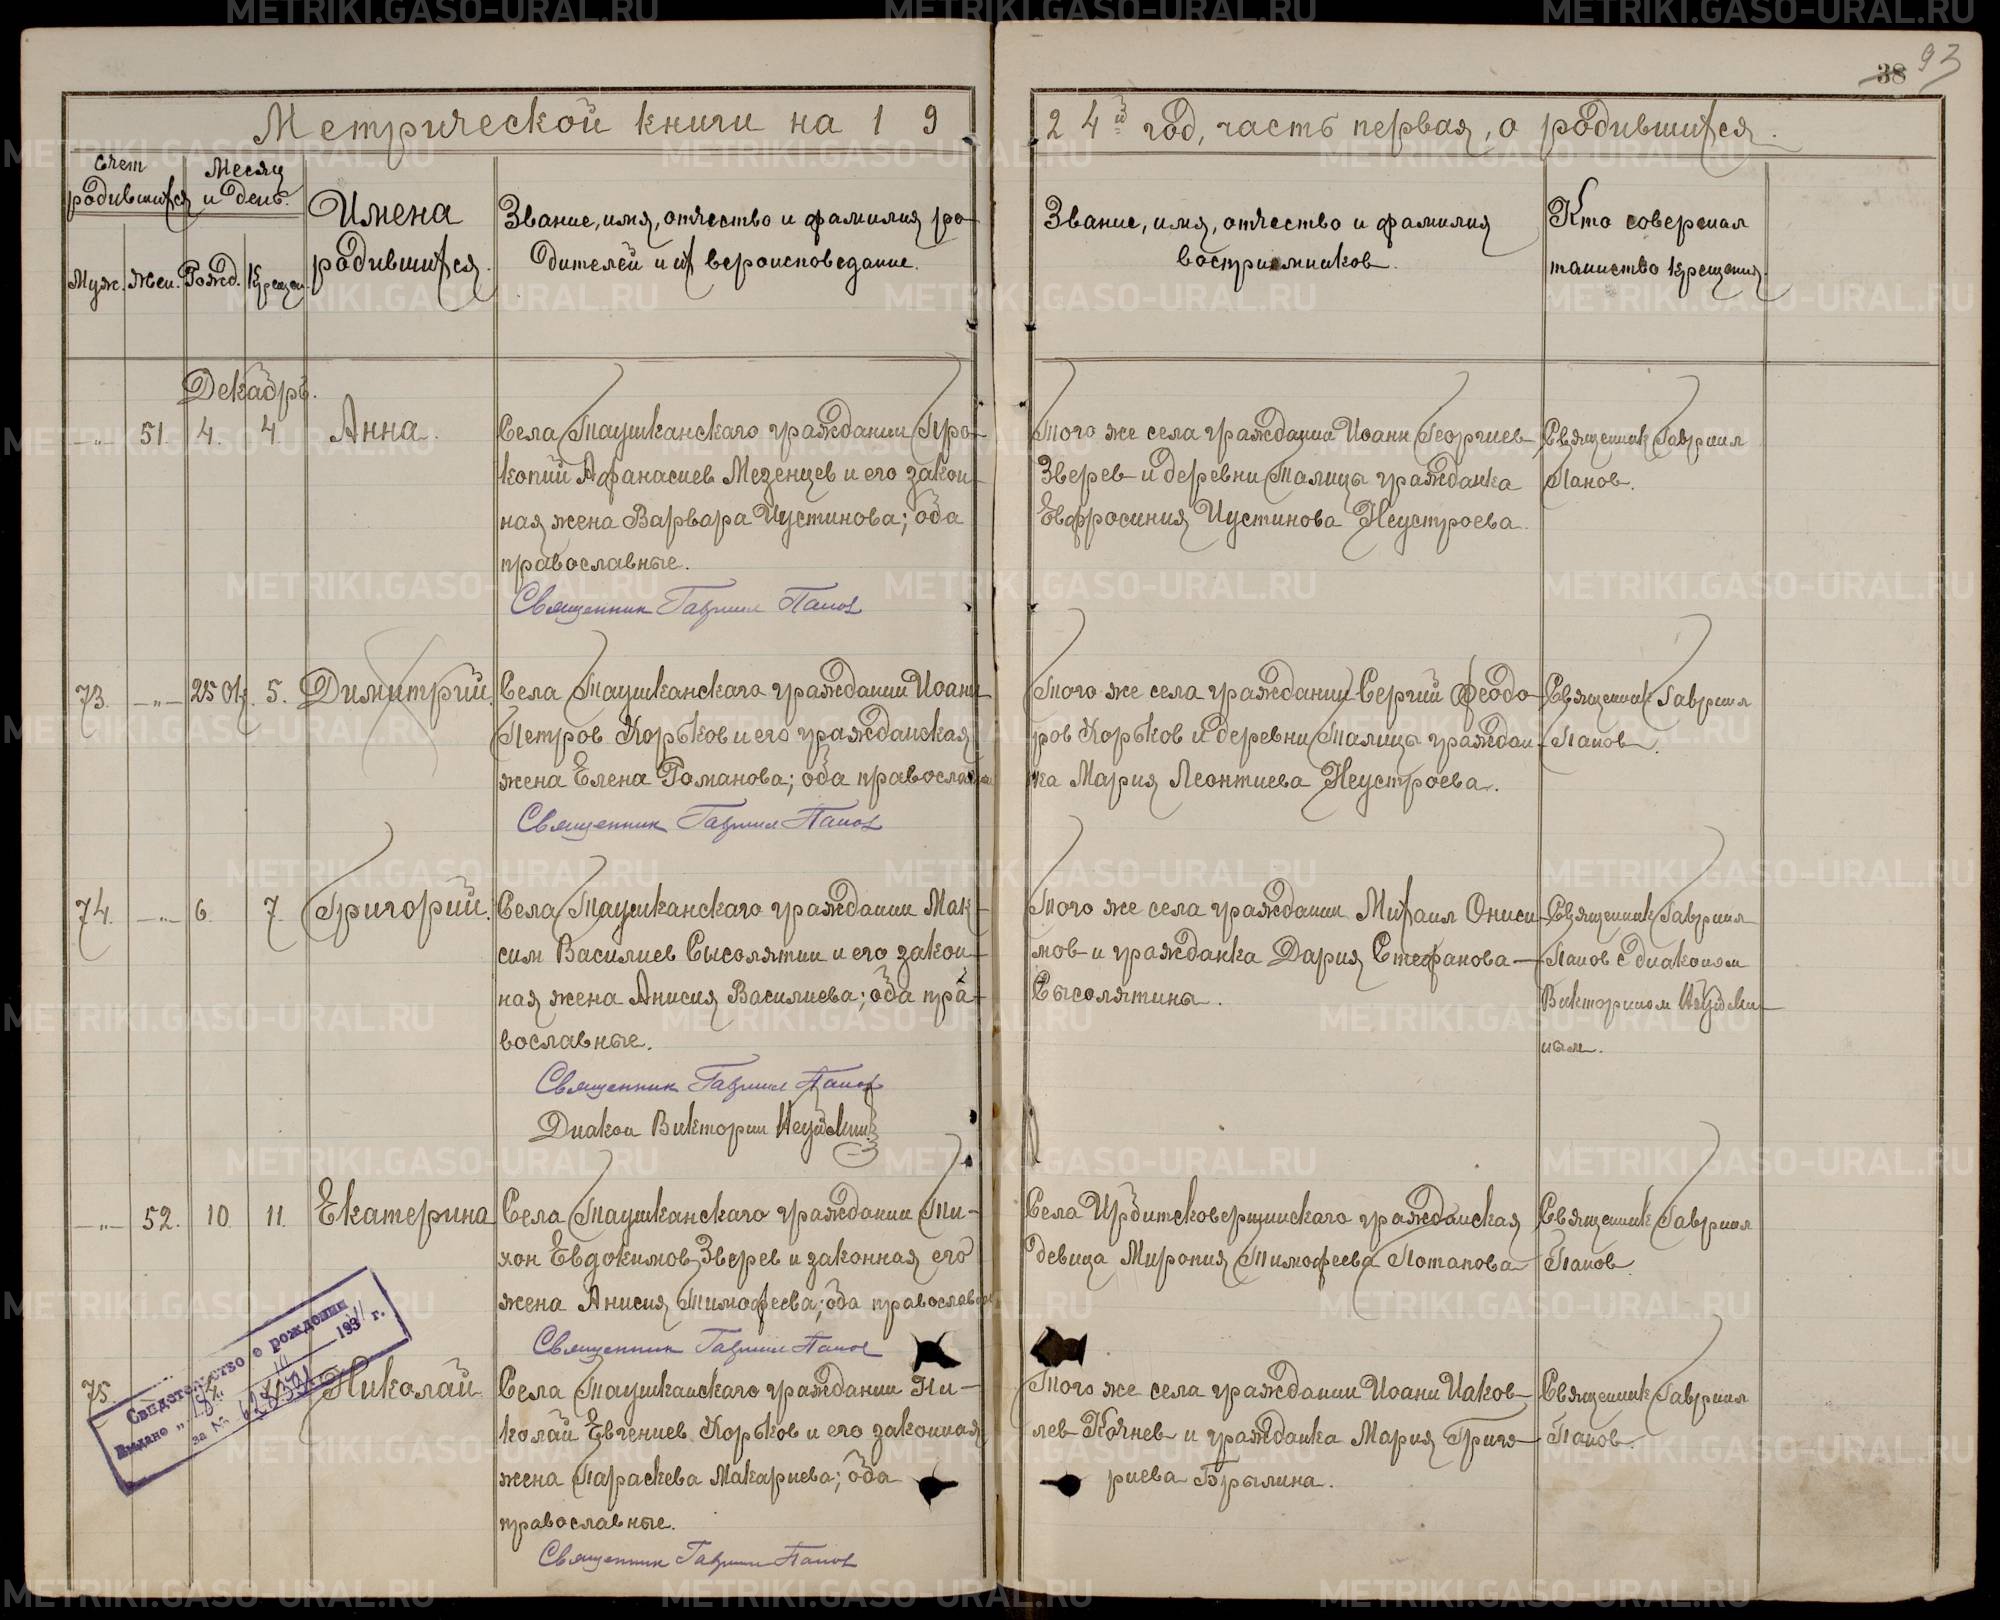 38 93
Метрической книги на 19
24й год, часть первая, о родившихся.
Счет родившихся
Месяц и день.
Муж. Жен. Рожд. Крещен.
Имена родившихся.
Звание, имя, отчество и фамилия ро-
дителей и их вероисповедание.
Звание, имя, отчество и фамилия
восприемников.
Кто совершал
таинство крещения.
Декабрь.
-„- 51. 4. 4. Анна.
Села Таушканскаго гражданин Про-
копий Афанасиев Мезенцев и его закон-
ная жена Варвара Иустинова; оба
православные.
Священник Гавриил Попов
Того же села гражданин Иоанн Георгиев
Зверев и деревни Талицы гражданка
Евфросиния Иустинова Неустроева.
Священник Гавриил
Попов.
73. -„- 25 5. Димитрий.
Села Таушканскаго гражданин Иоанн
Петров Хорьков и его гражданская
жена Елена Романова; оба православны
Священник Гавриил Попов
Того же села гражданин Сергий Феодо-
ров Хорьков и деревни Талицы граждан-
ка Мария Леонтиева Неустроева.
Священник Гавриил
Попов.
74. -„- 6. 7. Григорий.
Села Таушканскаго гражданин Мак-
сим Василиев Сысолятин и его закон-
ная жена Анисия Василиева; оба пра-
вославные.
Священник Гавриил Попов
Диакон Викторин
Того же села гражданин Михаил Ониси-
мов и гражданка Дария Стефанова
Сысолятины.
Священник Гавриил
Попов с диаконом
Викторином
ным.
-„- 52. 10. 11. Екатерина
Села Таушканскаго гражданин Ти-
хон Евдокимов Зверев и законная его
жена Анисия Тимофеева; оба православные
Священник Гавриил Попов
Села Ирбитсковершинскаго гражданская
девица Мирония Тимофеева Потапова
Священник Гавриил
Попов.
75. Николай
Села Таушканскаго гражданин Ни-
колай Евгениев Хорьков и его законная
жена Параскева Макариева; оба
православные.
Священник Гавриил Попов
Того же села гражданин Иоанн Иаков-
лев Кочнев и гражданка Мария Григо-
риева Брылина.
Священник Гавриил
Попов.
Свидетельство о рождении
Выдано „ 193 г.
за №
METRIKI.GASO-URAL.RU